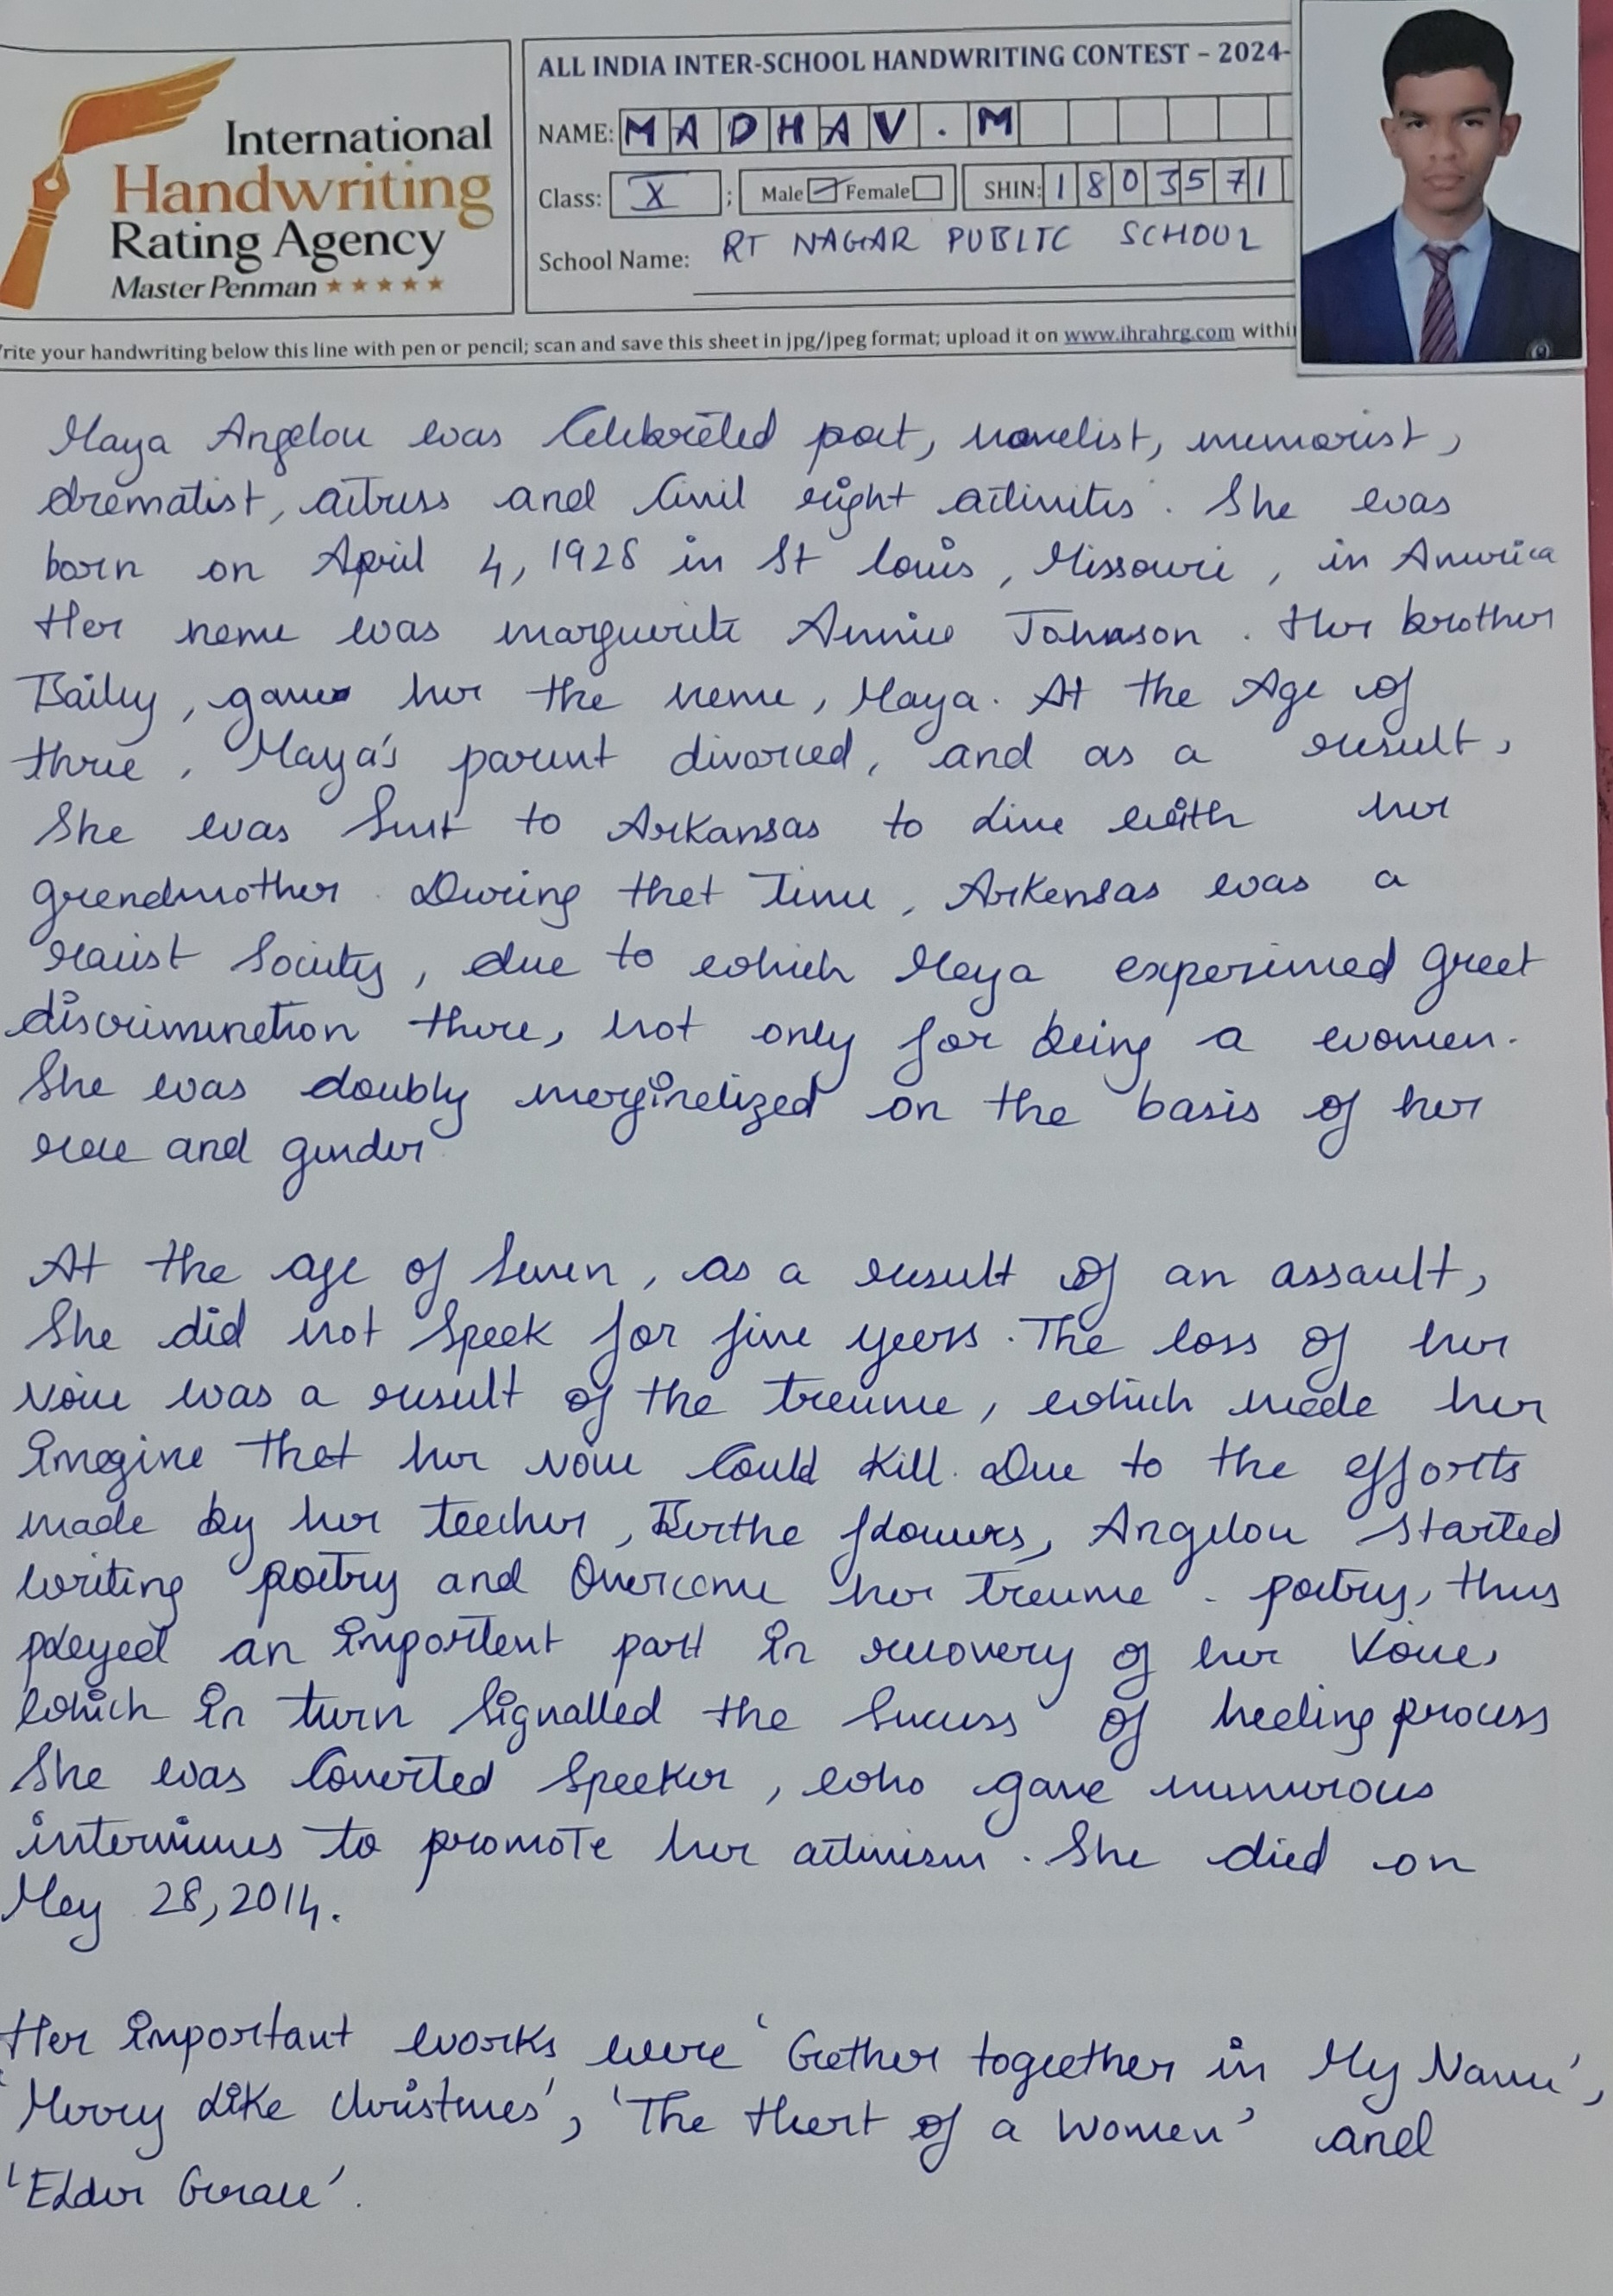 International
Handwriting
Rating Agency
Master Penman
ALL INDIA INTER-SCHOOL HANDWRITING CONTEST – 2024-
NAME: MADHAV . M
Class: X ; Male Female SHIN: 1803571
School Name: RT NAGAR PUBLIC SCHOOL
rite your handwriting below this line with pen or pencil; scan and save this sheet in jpg/jpeg format; upload it on www.ihrahrg.com within
Maya Angelou was Celebrated poet, novelist, memorist,
dramatist, actress and Civil right activities. She was
born on April 4, 1928 in St louis, Missouri, in America
Her name was marguerite Annie Johnson. Her brother
Bailey, gave her the name, Maya. At the Age of
three, Maya's parent divorced, and as a result,
She was Sent to Arkansas to Live with her
grandmother. During that Time, Arkansas was a
racist Society, due to which Maya experienced great
discrimination there, not only for being a women.
She was doubly marginalized on the basis of her
race and gender
At the age of Seven, as a result of an assault,
She did not Speak for five years. The loss of her
voice was a result of the trauma, which made her
Imagine That her voice Could Kill. Due to the efforts
made by her teacher, Bertha flowers, Angelou started
writing poetry and Overcome her trauma. poetry, thus
played an Important part In recovery of her Voice,
which In turn Signalled the Success of healing process
She was Coverted Speaker, who gave numerous
interviews to promote her activism. She died on
May 28, 2014.
Her Important works were 'Gather together in My Name',
'Merry Like Christmas', 'The Heart of a Women' and
'Elder Grace'.